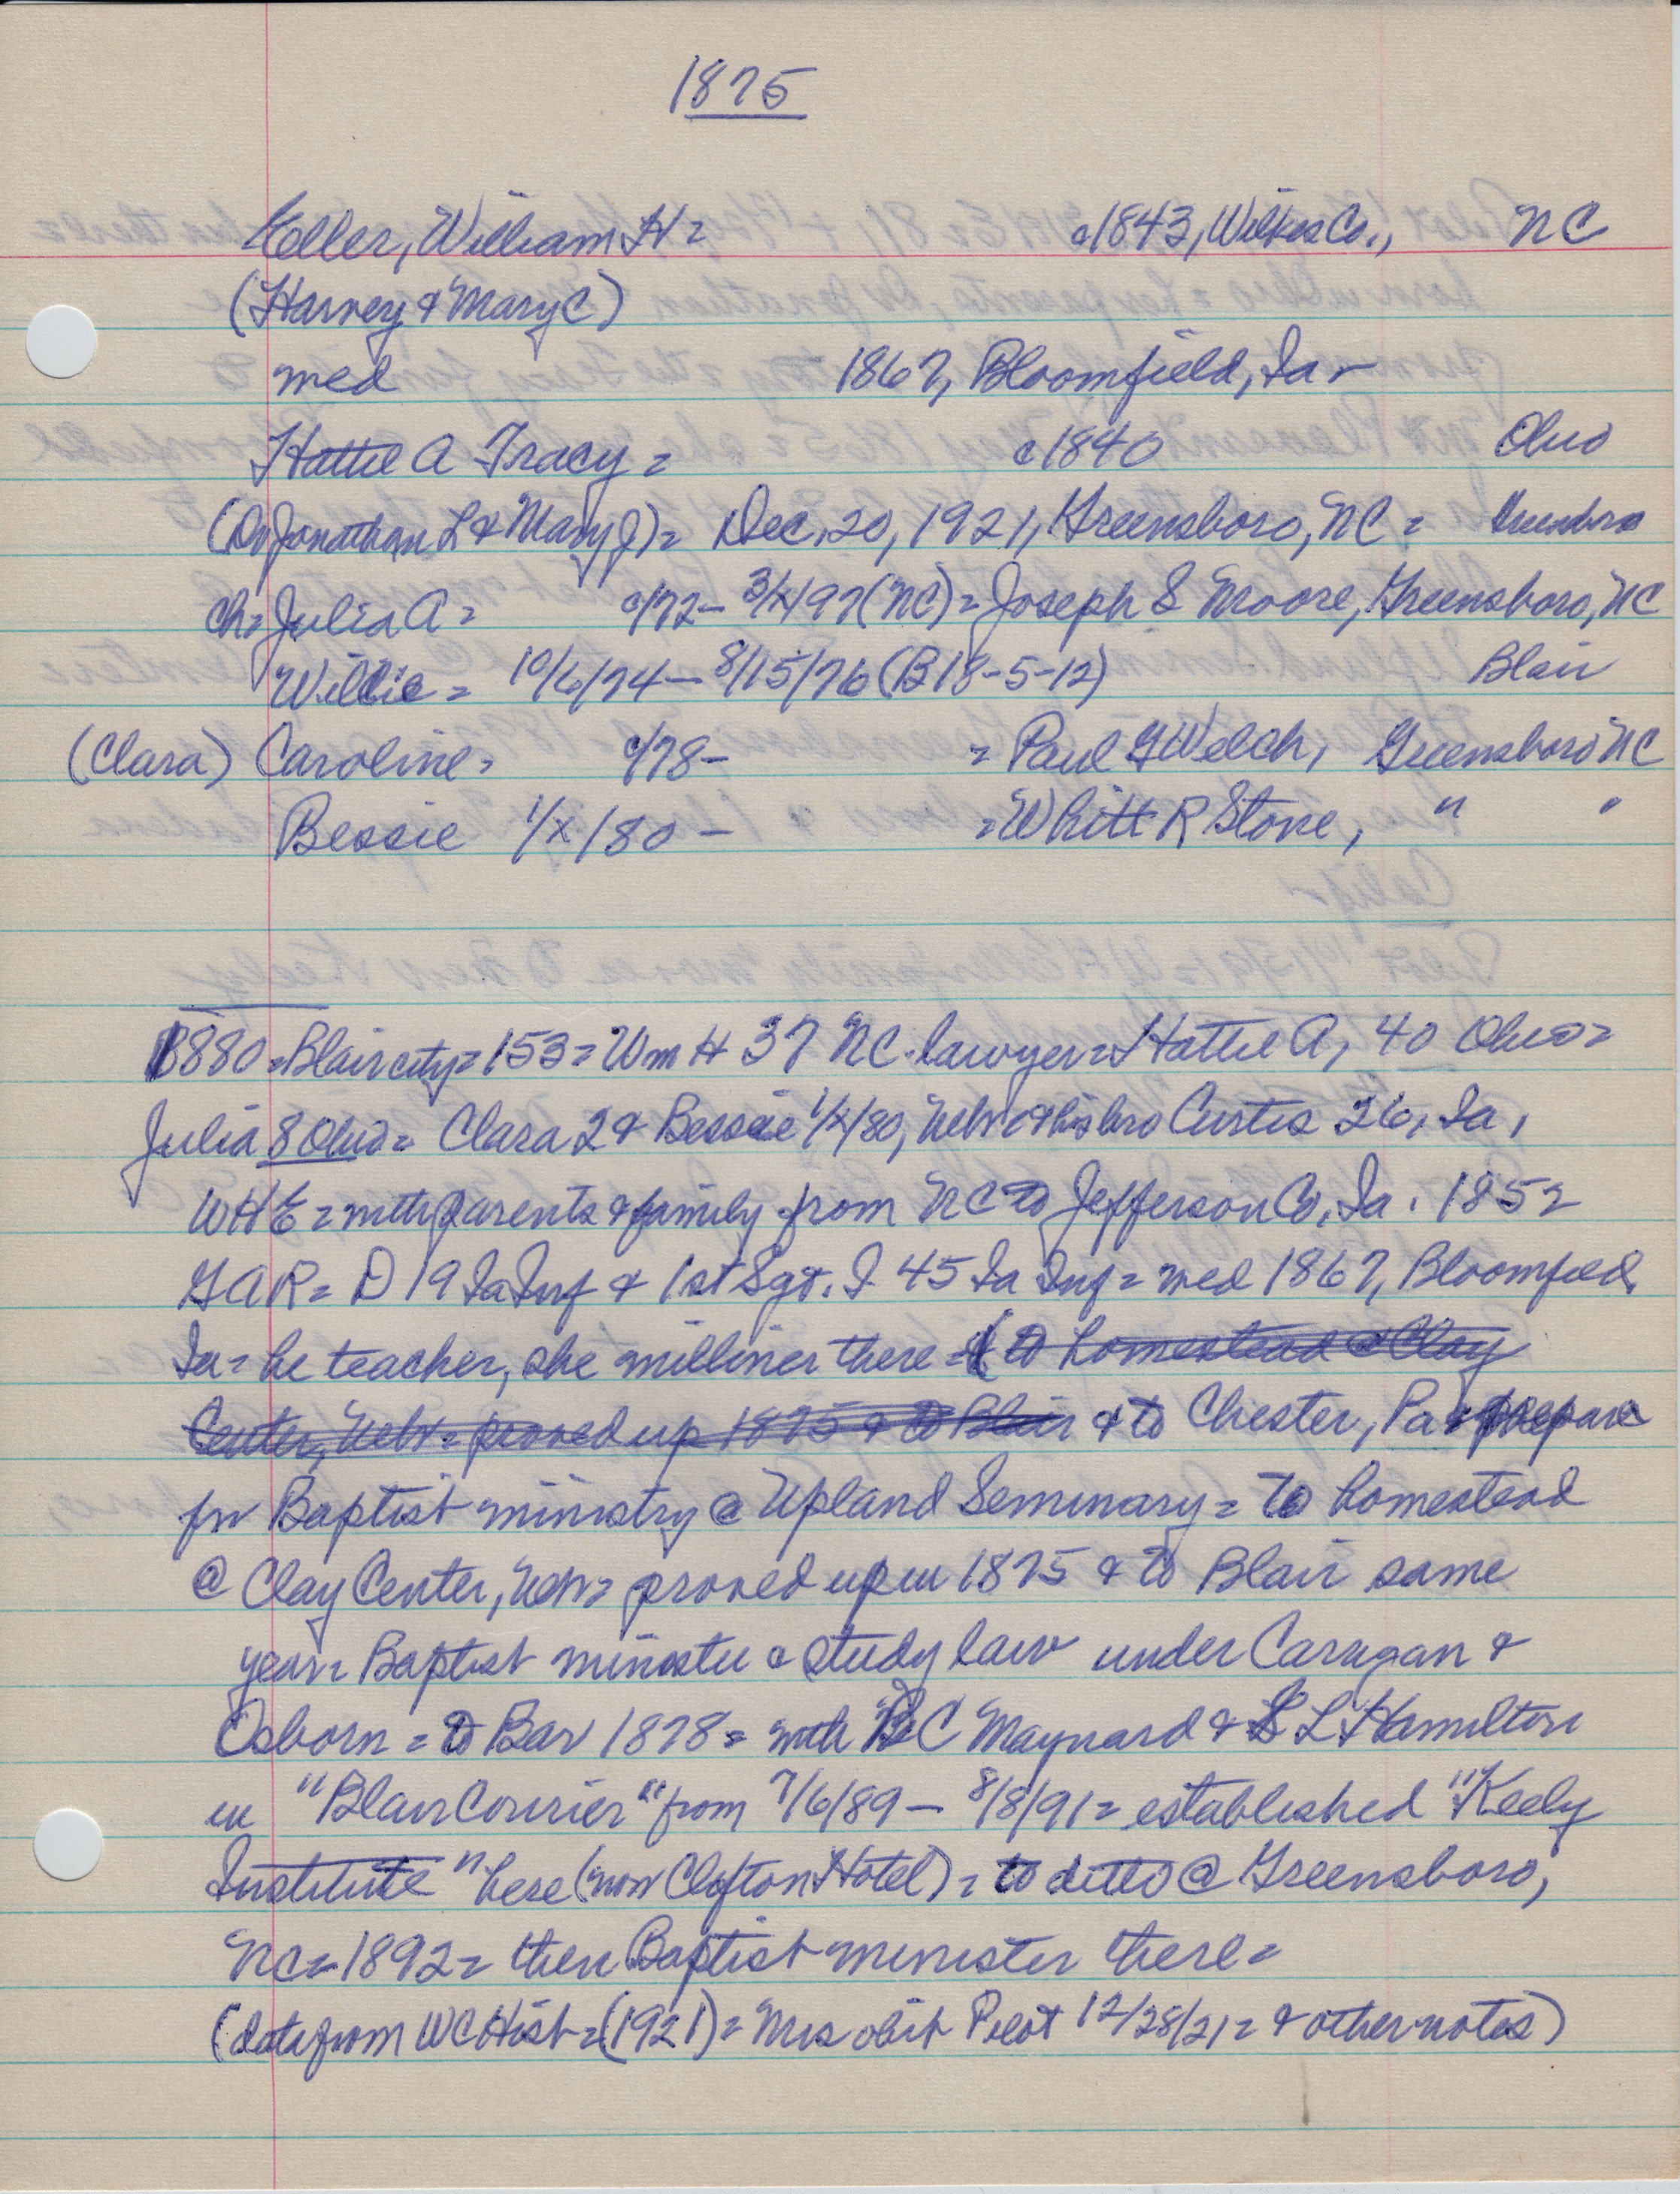 1875
Eller, William H = c1843, Wilkes Co., NC
(Harvey & Mary C)
med 1867, Bloomfield, Ia
Hattie A Tracy = c1840 Ohio
(Dr Jonathan L & Mary J) = Dec. 20, 1921, Greensboro, NC = Greensboro
ch = Julia A = c/72 - 3/x/97 (NC) = Joseph S Moore, Greensboro, NC
Willie = 10/6/74 - 8/15/76 (B18-5-12) Blair
(Clara) Caroline = c/78 - = Paul G Welch, Greensboro NC
Bessie 1/x/80 - = Whitt R Stone, " "
1880 = Blair city = 153 = Wm H 37 NC lawyer = Hattie A, 40 Ohio =
Julia 8 Ohio = Clara 2 & Bessie 1/x/80, Nebr & his bro Curtis 26, Ia,
WHE = with parents & family from NC to Jefferson Co, Ia. 1852
GAR = D 19 Ia Inf & 1st Sgt. I 45 Ia Inf = med 1867, Bloomfield,
Ia = he teacher, she milliner there = ( to homestead @ Clay
Center, Nebr = proved up 1875 & to Blair & to Chester, Pa prepare
for Baptist ministry @ Upland Seminary = to homestead
@ Clay Center, Nebr = proved up in 1875 & to Blair same
year = Baptist minister & study law under Carrigan &
Osborn = to Bar 1878 = with C Maynard & L Hamilton
in "Blair Courier" from 7/6/89 - 8/8/91 = established "Keely
Institute" here (now Clifton Hotel) = to ditto @ Greensboro,
NC = 1892 = then Baptist minister there =
(data from WC Hist = (1921) = Mrs obit Pilot 12/28/21 = & other notes)